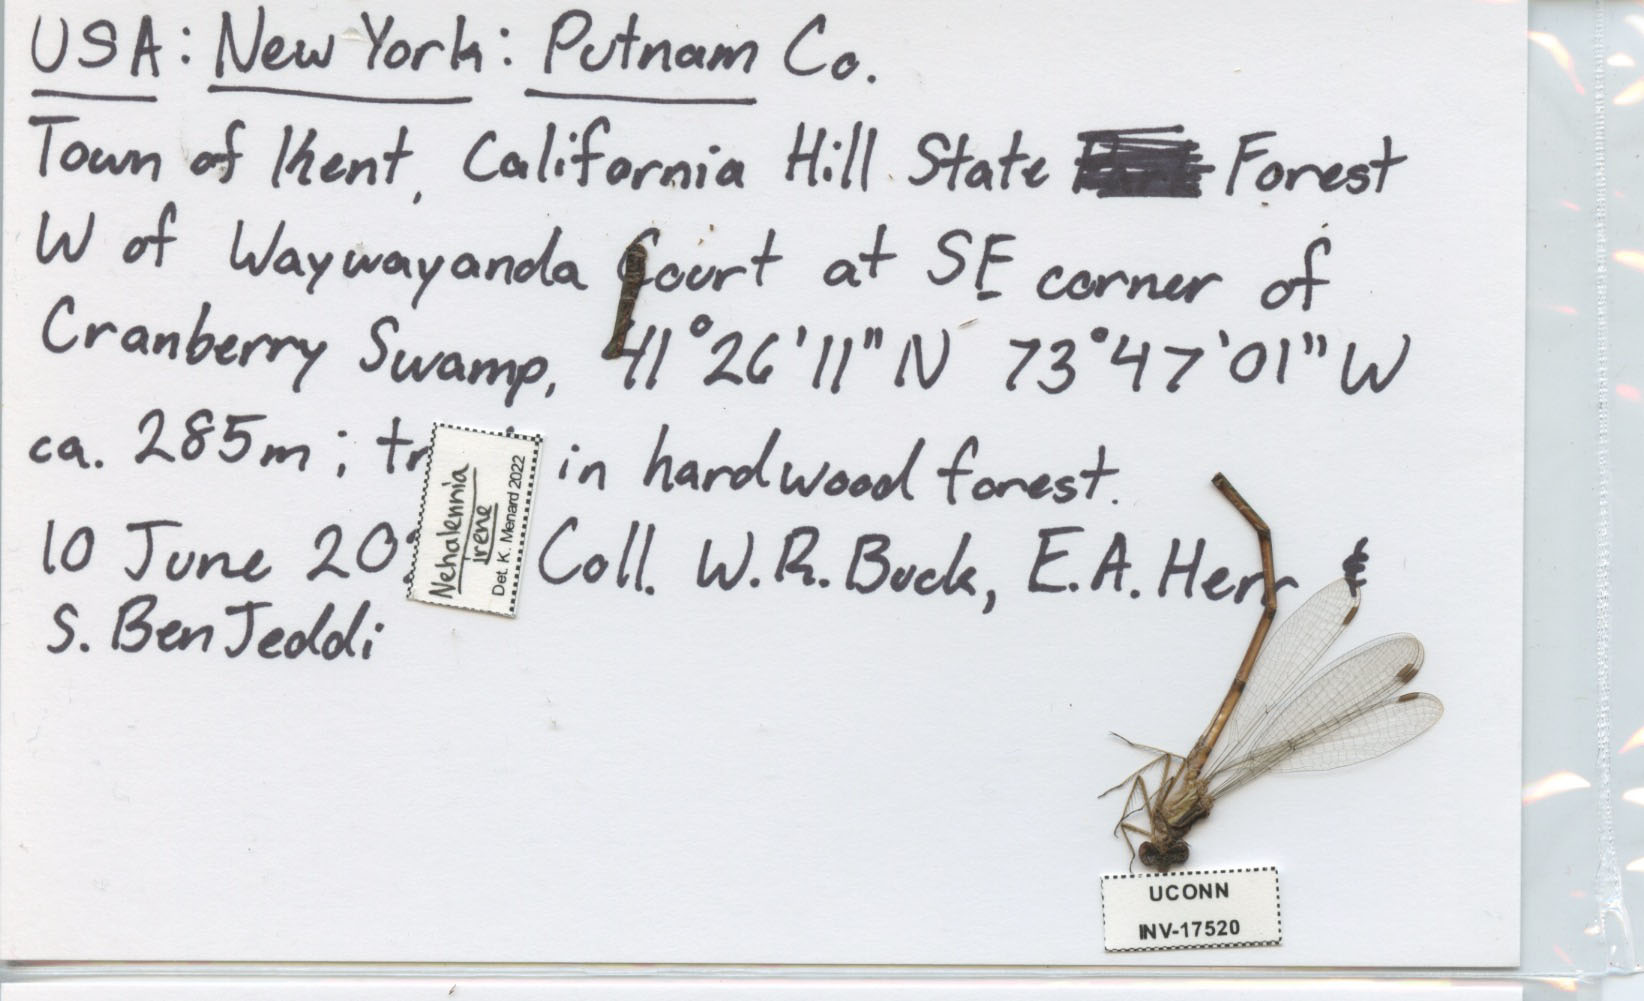 USA: New York: Putnam Co.
Town of Kent, California Hill State Forest
W of Waywayanda Court at SE corner of
Cranberry Swamp, 41°26'11"N 73°47'01"W
ca. 285m; in hardwood forest.
10 June Coll. W.R. Buck, E.A. Herr &
S. Ben Jeddi
Nehalennia
irene
Det. K. Menard 2022
UCONN
INV-17520